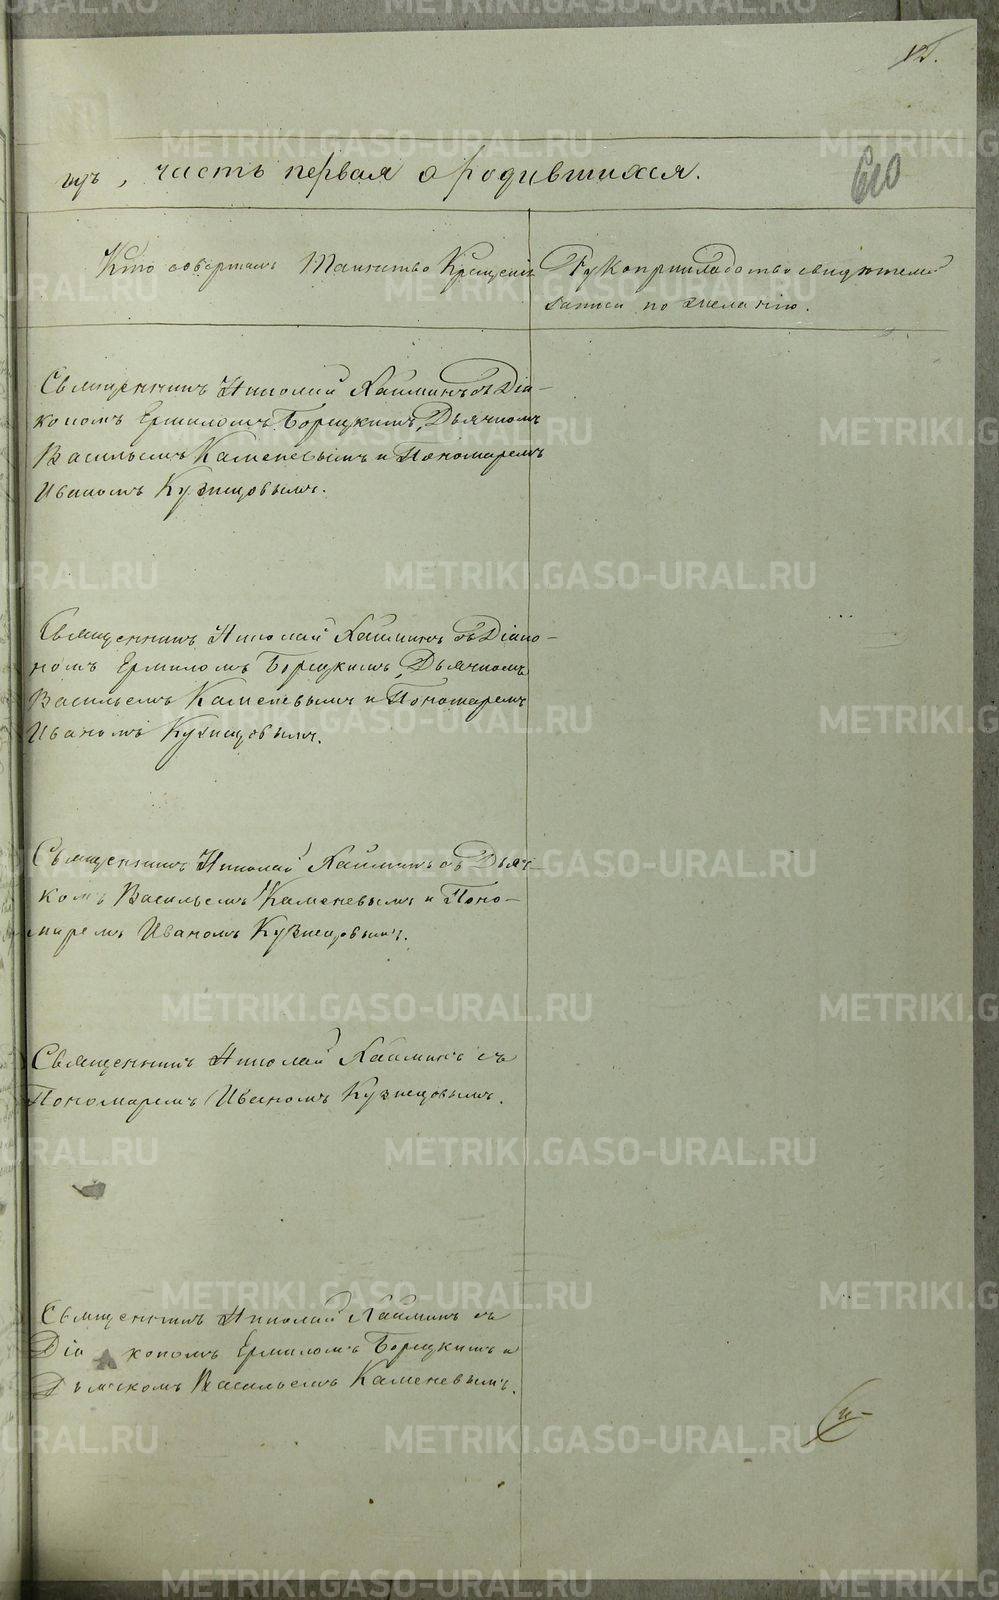 12.
610
годъ, часть первая о родившихся.
Кто совершалъ Таинство Крещенія
Рукоприкладство свидѣтелей
записи по желанію.
Священникъ Николай съ Діа-
кономъ Ермиломъ Борецкимъ, Дьячкомъ
Васильемъ Каменевымъ и Пономаремъ
Иваномъ Кузнецовымъ.
Священникъ Николай съ Діако-
номъ Ермиломъ Борецкимъ, Дьячкомъ
Васильемъ Каменевымъ и Пономаремъ
Иваномъ Кузнецовымъ.
Священникъ Николай съ Дьяч-
комъ Васильемъ Каменевымъ и Поно-
маремъ Иваномъ Кузнецовымъ.
Священникъ Николай съ
Пономаремъ Иваномъ Кузнецовымъ.
Священникъ Николай съ
Діакономъ Ермиломъ Борецкимъ и
Дьячкомъ Васильемъ Каменевымъ.
METRIKI.GASO-URAL.RU